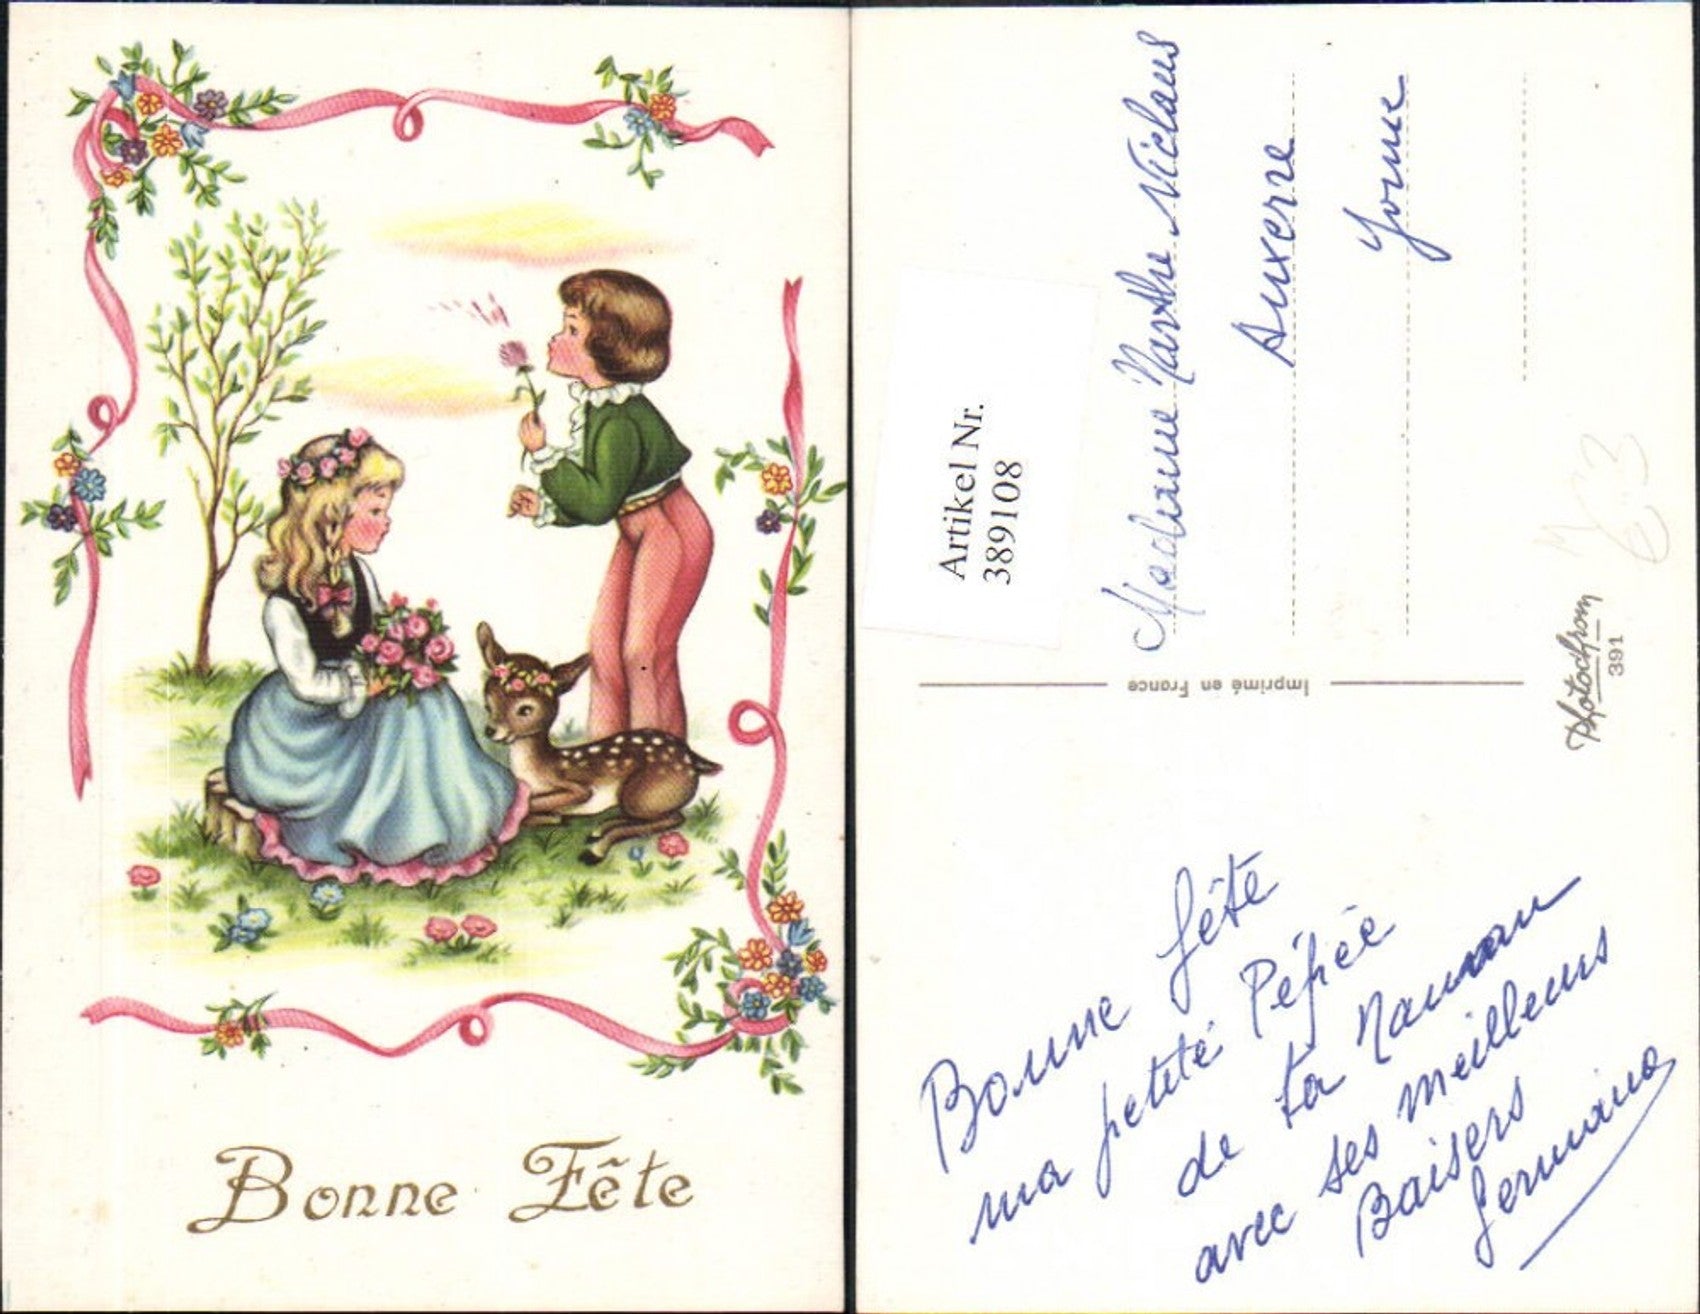 Bonne Fête
Artikel Nr.
389108
Madame Marthe Niclaus
Auxerre
Yonne
Imprimé en France
Photochrom
391
Bonne fête
ma petite Pépée
de ta Maman
avec ses meilleurs
Baisers
Germaine